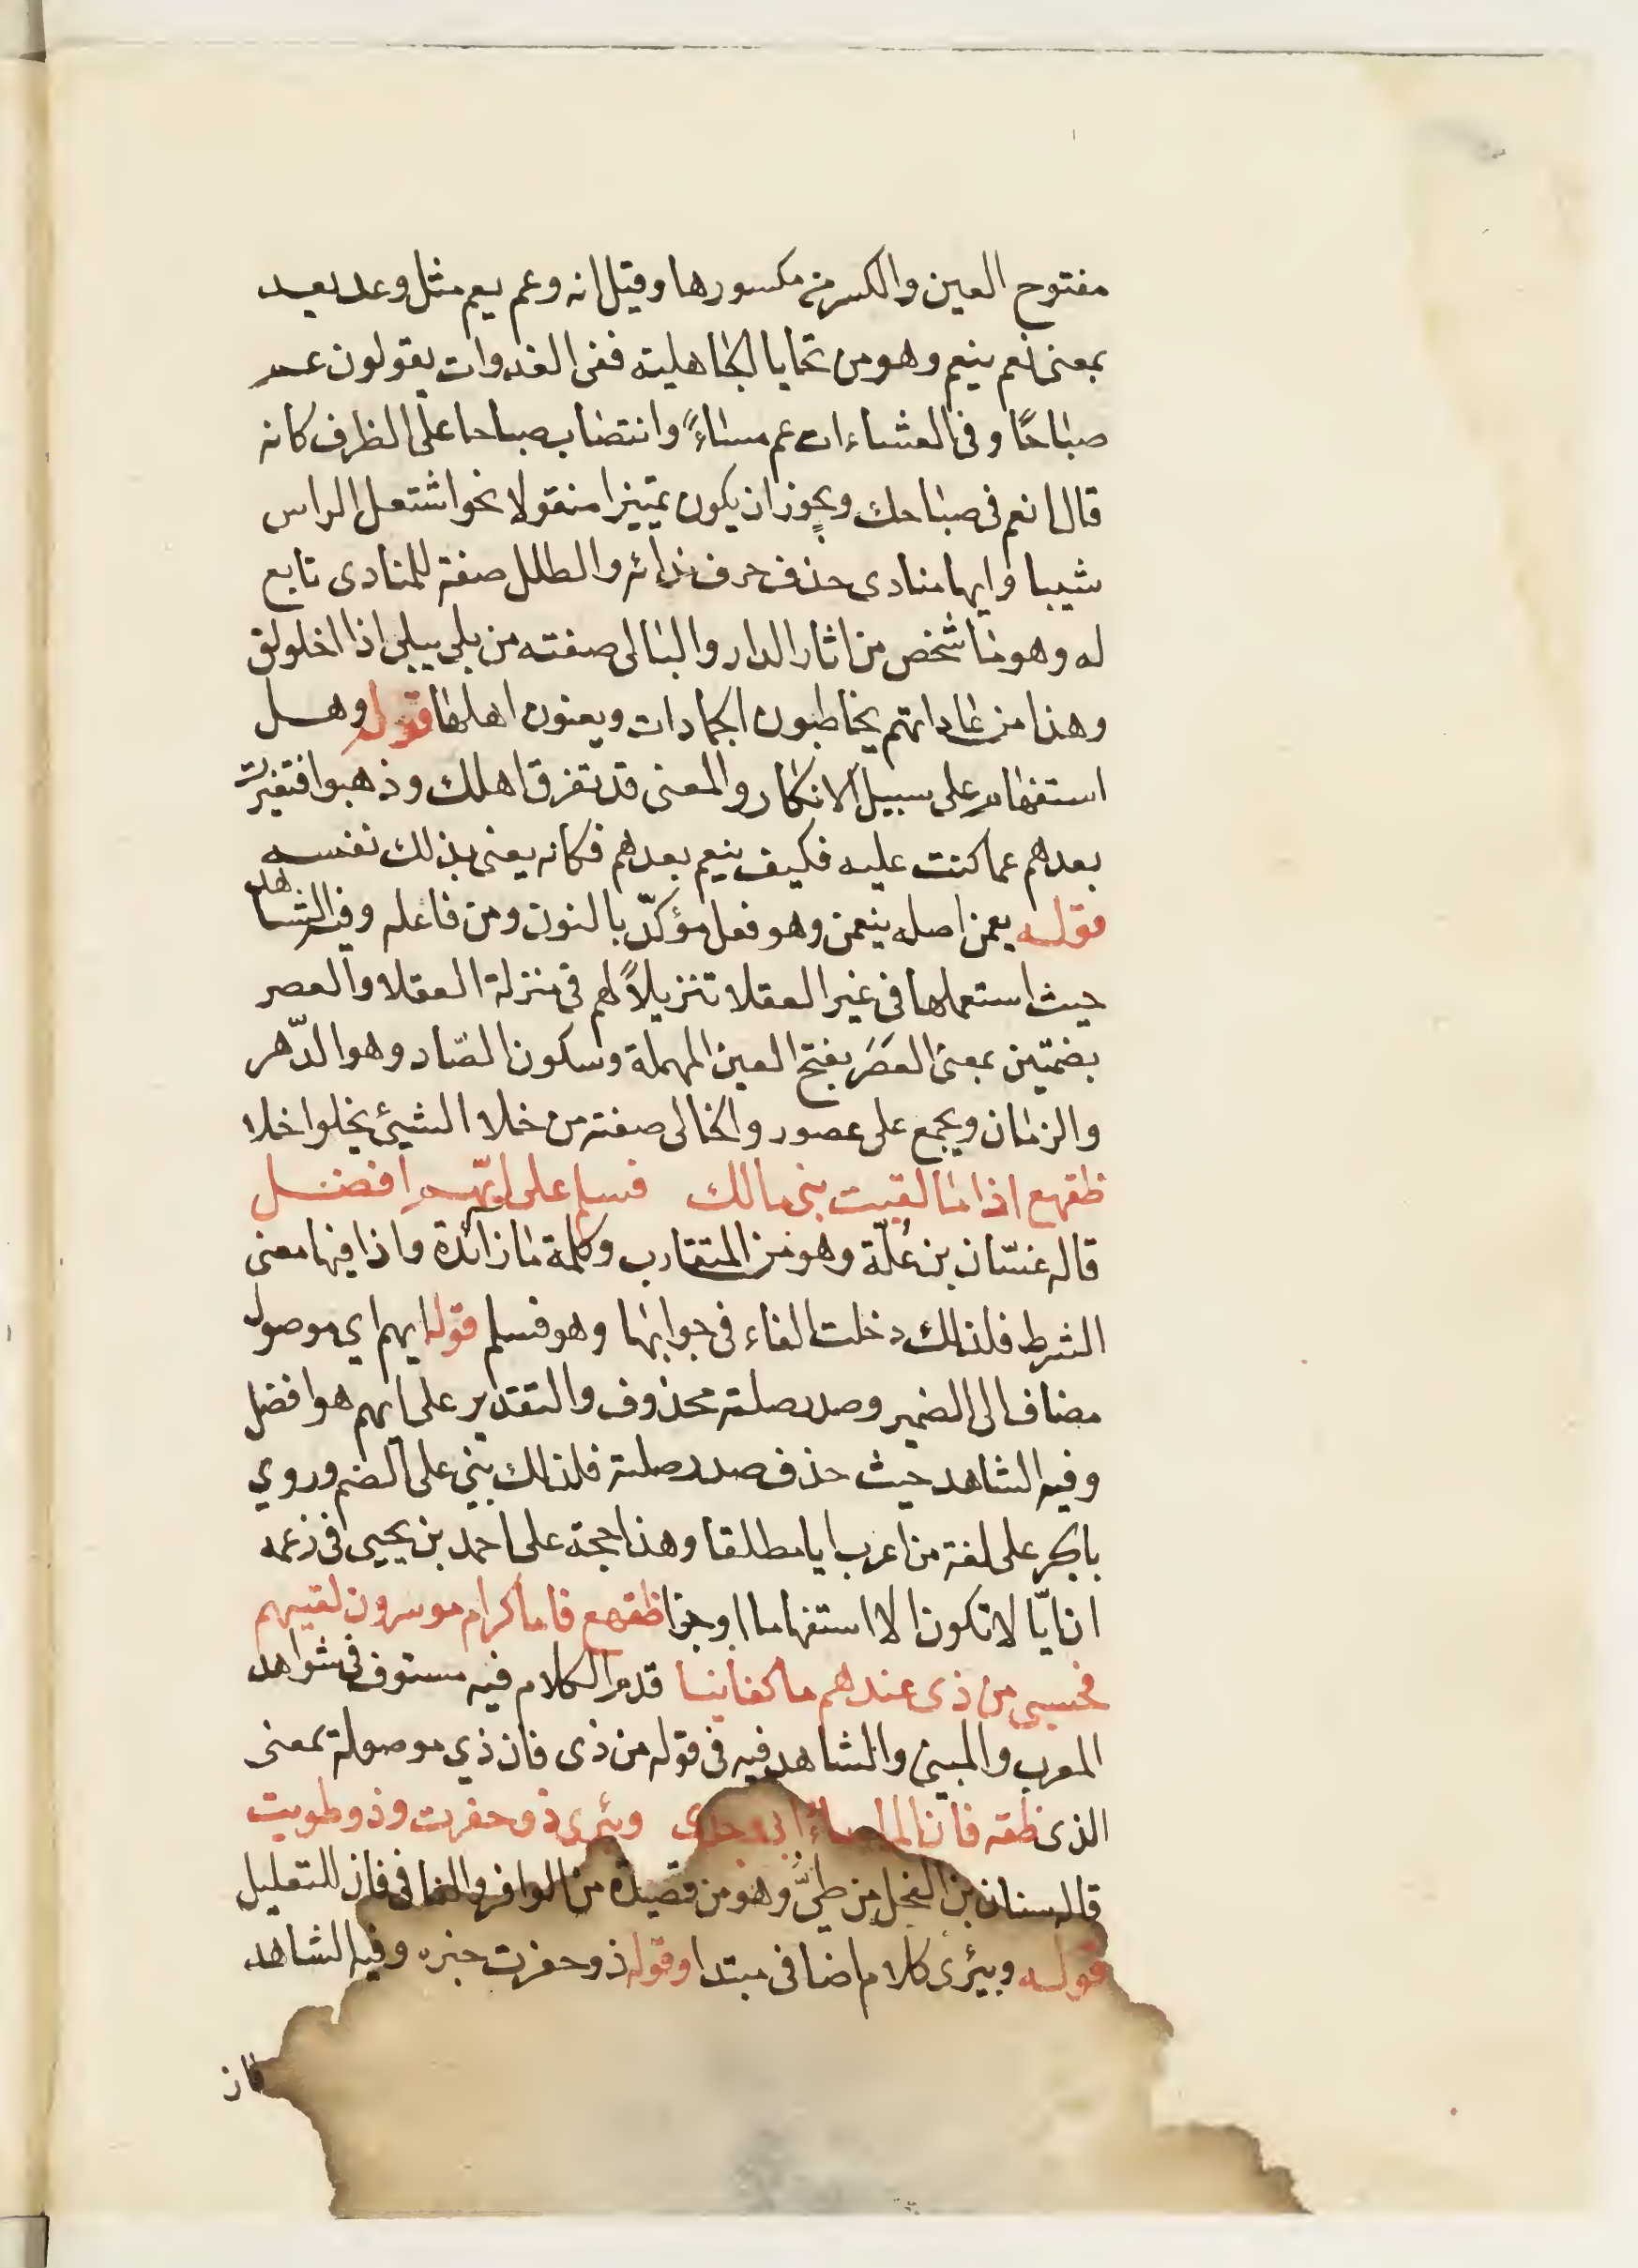 مفتوح العين والكسر من مكسورها وقيل انه وعم يعم مثل وعد يعد
بمعنى نعم ينعم وهو من تحايا الجاهلية ففى الغدوات يقولون عم
صباحًا وفى العشاءات عم مساءً وانتصاب صباحا على الظرف كانه
قال انعم فى صباحك ويجوز ان يكون تمييزا منقولا نحو اشتعل الراس
شيبا وايها منادى حذف حرف ندائه والطلل صفة للمنادى تابع
له وهو ما شخص من اثار الدار والبالى صفته من بلى يبلى اذا اخلولق
وهذا من عاداتهم يخاطبون الجمادات ويعنون اهلها قوله وهل
استفهام على سبيل الانكار والمعنى قد تفرق اهلك وذهبوا فتغيرت
بعدهم عما كنت عليه فكيف ينعم بعدهم فكانه يعنى بذلك نفسه
قوله يعمن اصله ينعمن وهو فعل مؤكّد بالنون ومن فاعله وفيه الشاهد
حيث استعملها فى غير العقلا تنزيلاً لهم فى منزلة العقلا والعصر
بضمتين بمعنى العَصَر بفتح العين المهملة وسكون الصّاد وهو الدّهر
والزمان ويجمع على عصور والخالى صفته من خلا الشيئ يخلوا خلا
ظقهع اذا ما لقيت بنى مالك فسلم على ايّهم افضل
قاله غسّان بن عُلّة وهو من المتقارب وكلمة ما زائدة واذا فيها معنى
الشرط فلذلك دخلت الفاء فى جوابها وهو فسلم قوله ايهم اي موصول
مضاف الى الضمير وصدر صلته محذوف والتقدير على ايهم هو افضل
وفيه الشاهد حيث حذف صدر صلته فلذلك بنى على الضم وروي
بالجر على لغة من اعرب ايا مطلقا وهذا حجة على احمد بن يحيى فى زعمه
ان ايّا لا تكون الا استفهاما او جزا ظقهع فاما كرام موسرون لقيتهم
فحسبى من ذى عندهم ما كفانيا قد مر الكلام فيه مستوف فى شواهد
المعرب والمبنى والشاهد فيه فى قوله من ذى فان ذي موصولة بمعنى
الذى ظقه فان الماء ماءُ ابى وجدى وبئرى ذو حفرت وذو طويت
قاله سنان بن الفحل من طىّ وهو من قصيدة من الوافر والفا فى فان للتعليل
قوله وبئرى كلام اضافى مبتدا وقوله ذو حفرت خبره وفيه الشاهد
فان